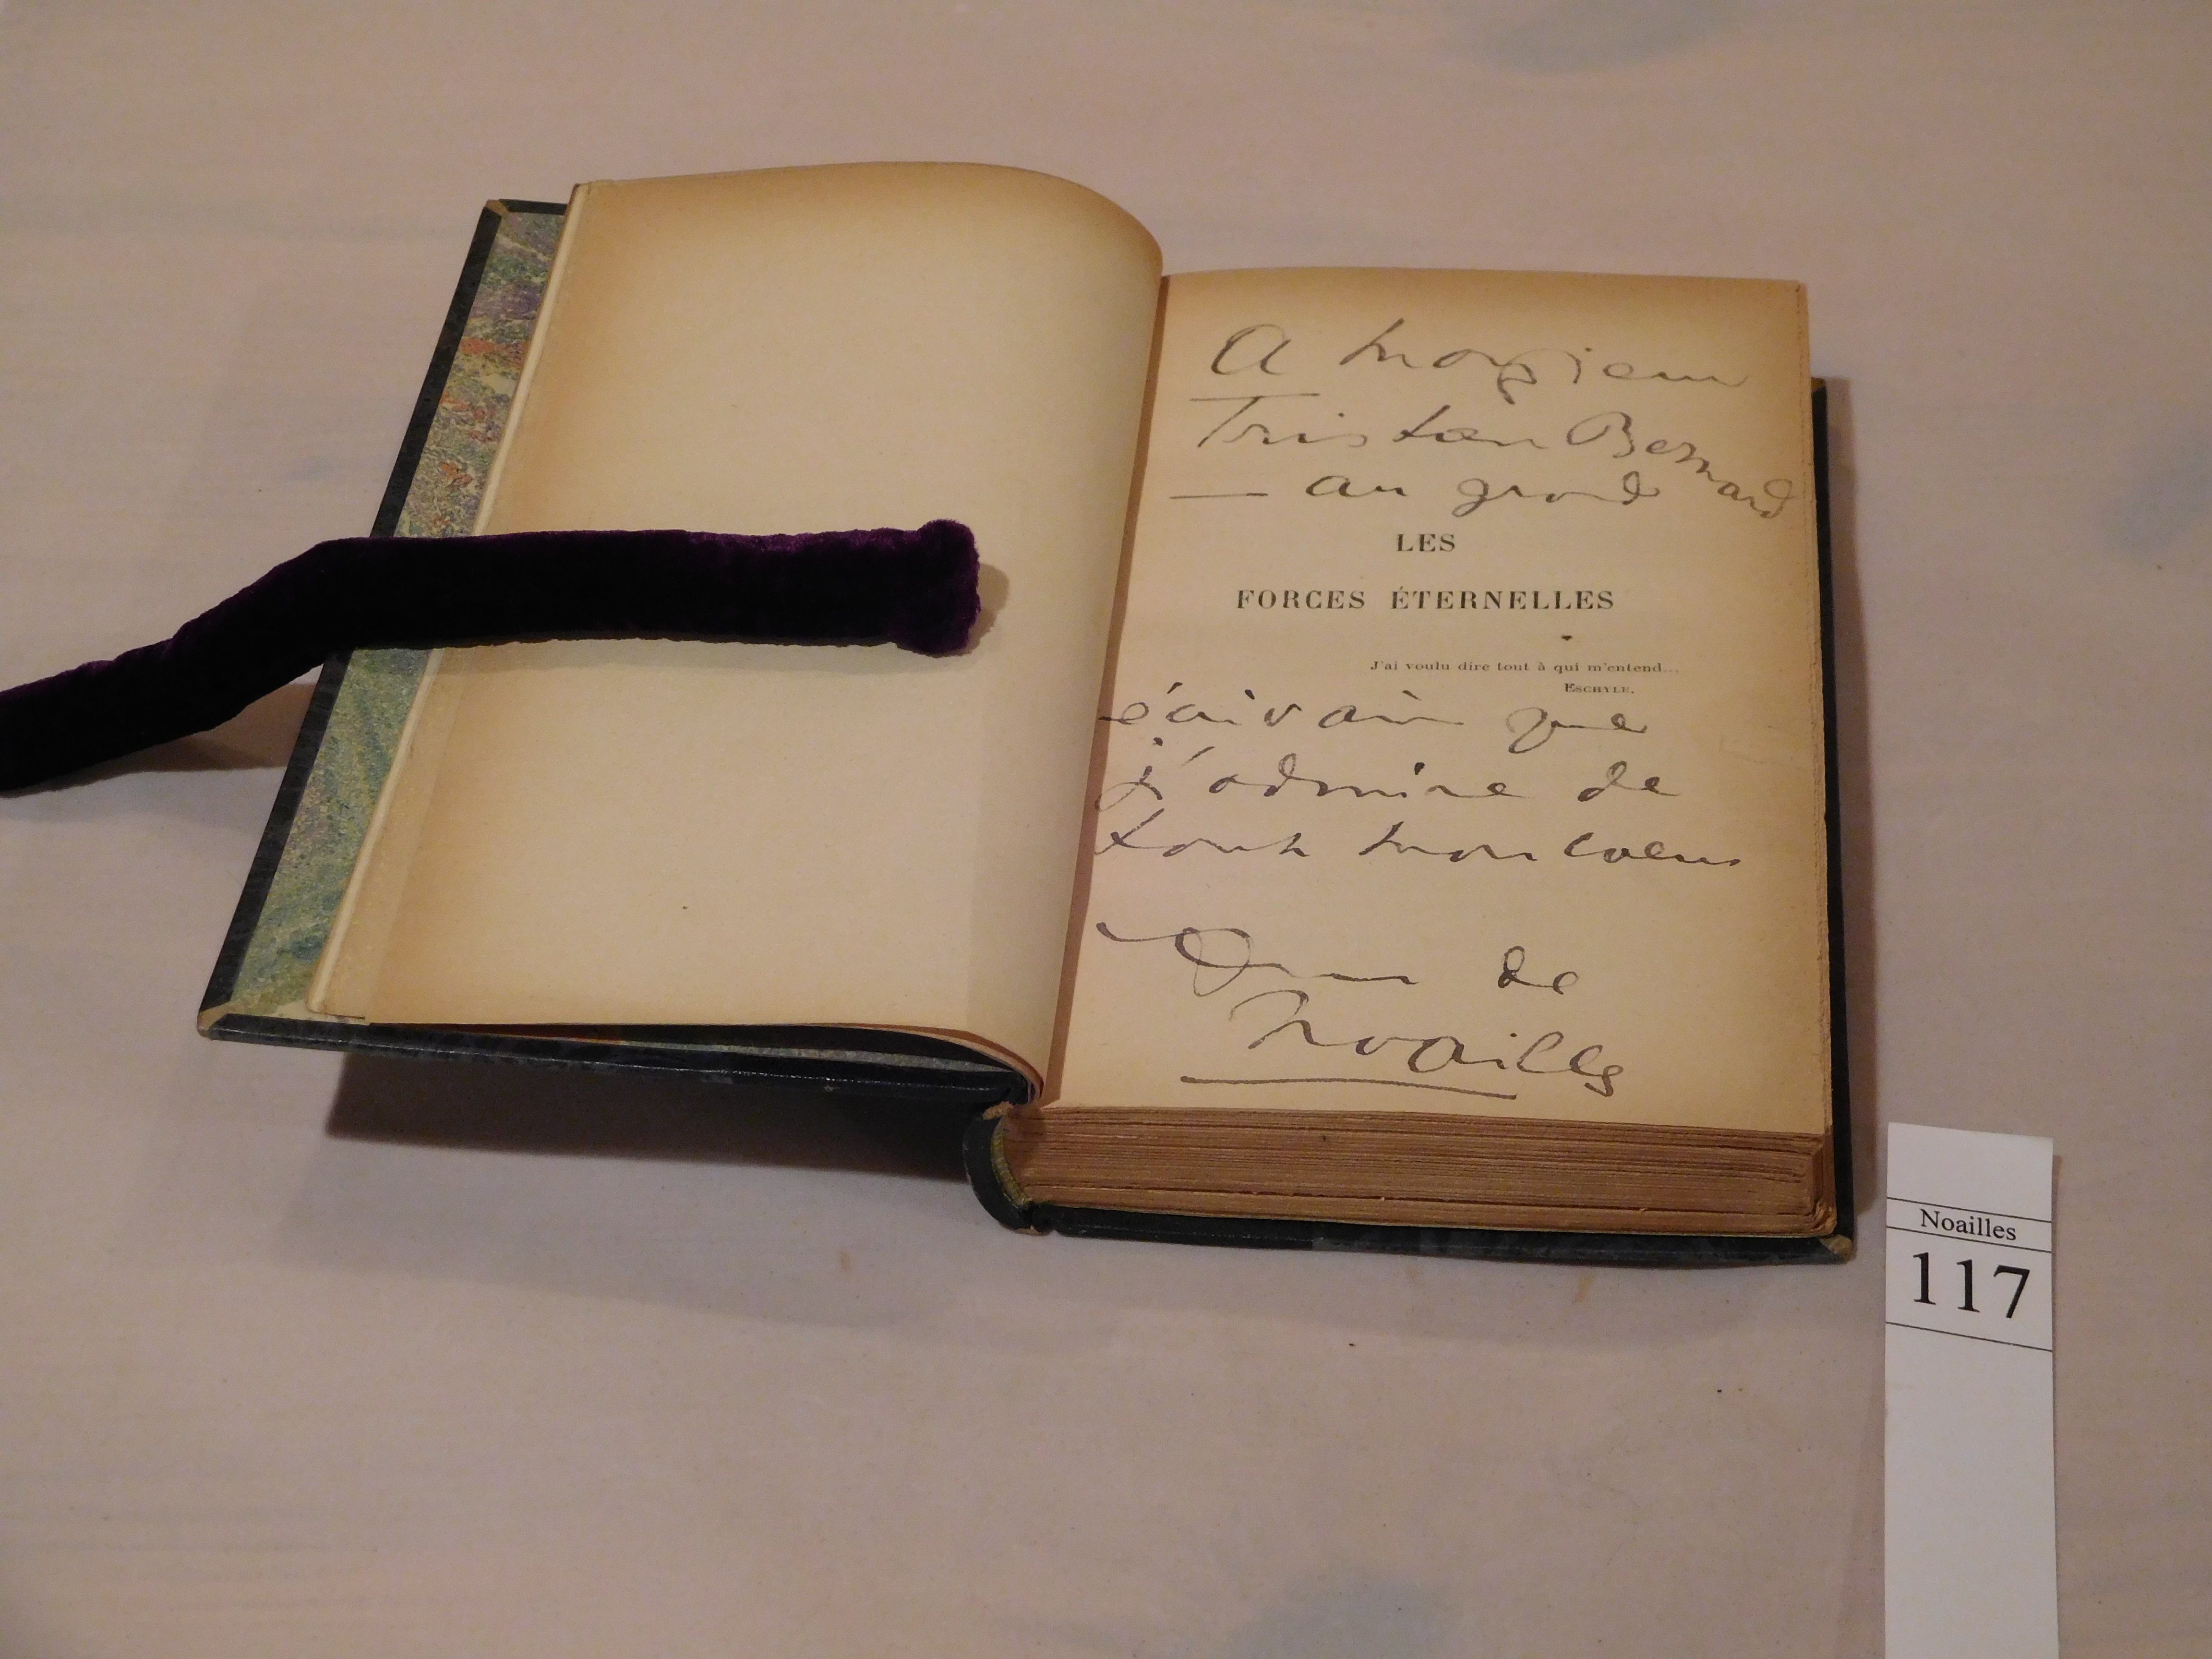 A Monsieur
Tristan Bernard
— au grand
LES
FORCES ÉTERNELLES
J'ai voulu dire tout à qui m'entend...
ESCHYLE.
écrivain que
j'admire de
tout mon coeur
Anna de
Noailles
Noailles
117